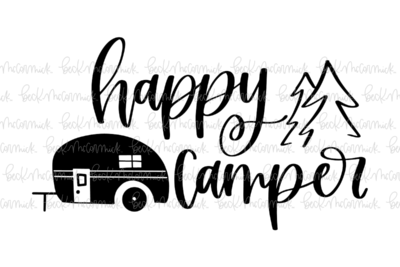 happy
camper